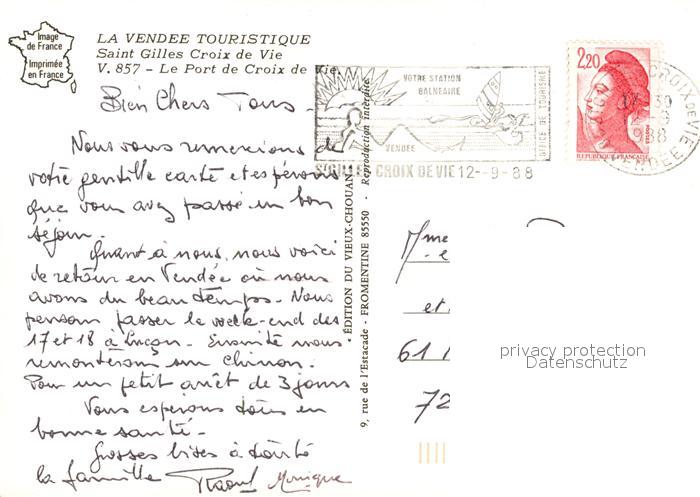 Image
de France
Imprimée
en France
LA VENDEE TOURISTIQUE
Saint Gilles Croix de Vie
V. 857 - Le Port de Croix de Vie
Bien Chers Tous -
Nous vous remercions de
votre gentille carte et espérons
que vous avez passé un bon
séjour.
Quant à nous, nous voici
de retour en Vendée où nous
avons du beau temps. Nous
pensons passer le week-end des
17 et 18 à Luçon. Ensuite nous
remonterons sur Chinon.
Pour un petit arrêt de 3 jours
Vous espérons tous en
bonne santé -
Grosses bises à toute
la famille Raoul Monique
ÉDITION DU VIEUX-CHOUAN
9, rue de l'Estacade - FROMENTINE 85550 - Reproduction interdite
VOTRE STATION
BALNEAIRE
VENDEE
OFFICE DE TOURISME
ST GILLES CROIX DE VIE 12--9-88
2,20
REPUBLIQUE FRANÇAISE
CROIX DE VIE
VENDEE
Mme
et
61
72
privacy protection
Datenschutz